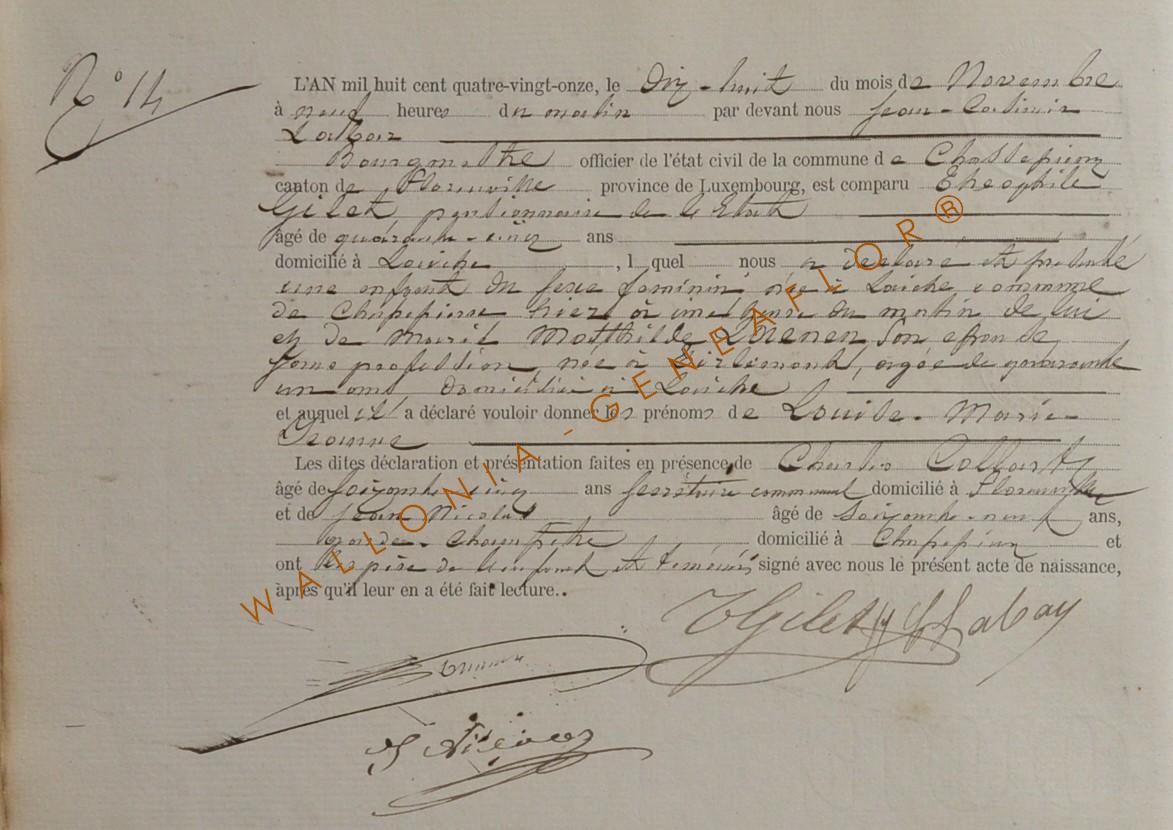 N° 14
L'AN mil huit cent quatre-vingt-onze, le Dix-huit du mois de Novembre
à neuf heures du matin par devant nous Jean-Casimir
Labar
Bourgmestre officier de l'état civil de la commune de Chassepierre
canton de Florenville province de Luxembourg, est comparu Théophile
Gilet, pensionnaire de l'Etat
âgé de quarante-cinq ans
domicilié à Laiche, lequel nous a déclaré et présenté
une enfant du sexe féminin née à Laiche, commune
de Chassepierre hier à une heure du matin de lui
et de Marie Mathilde son épouse
sans profession, née à Tirlemont, agée de quarante
un ans, domiciliée à Laiche
et auquel il a déclaré vouloir donner les prénoms de Louise-Marie-
Jeanne
Les dites déclaration et présentation faites en présence de Charles Collart,
âgé de soixante cinq ans secrétaire communal domicilié à Florenville
et de Jean Nicolas âgé de soixante-neuf ans,
garde-champêtre domicilié à Chassepierre et
ont les père de l'enfant et témoins signé avec nous le présent acte de naissance,
après qu'il leur en a été fait lecture..
TGilet
J Nicolas
WALLONIA-GENEAFLOR®